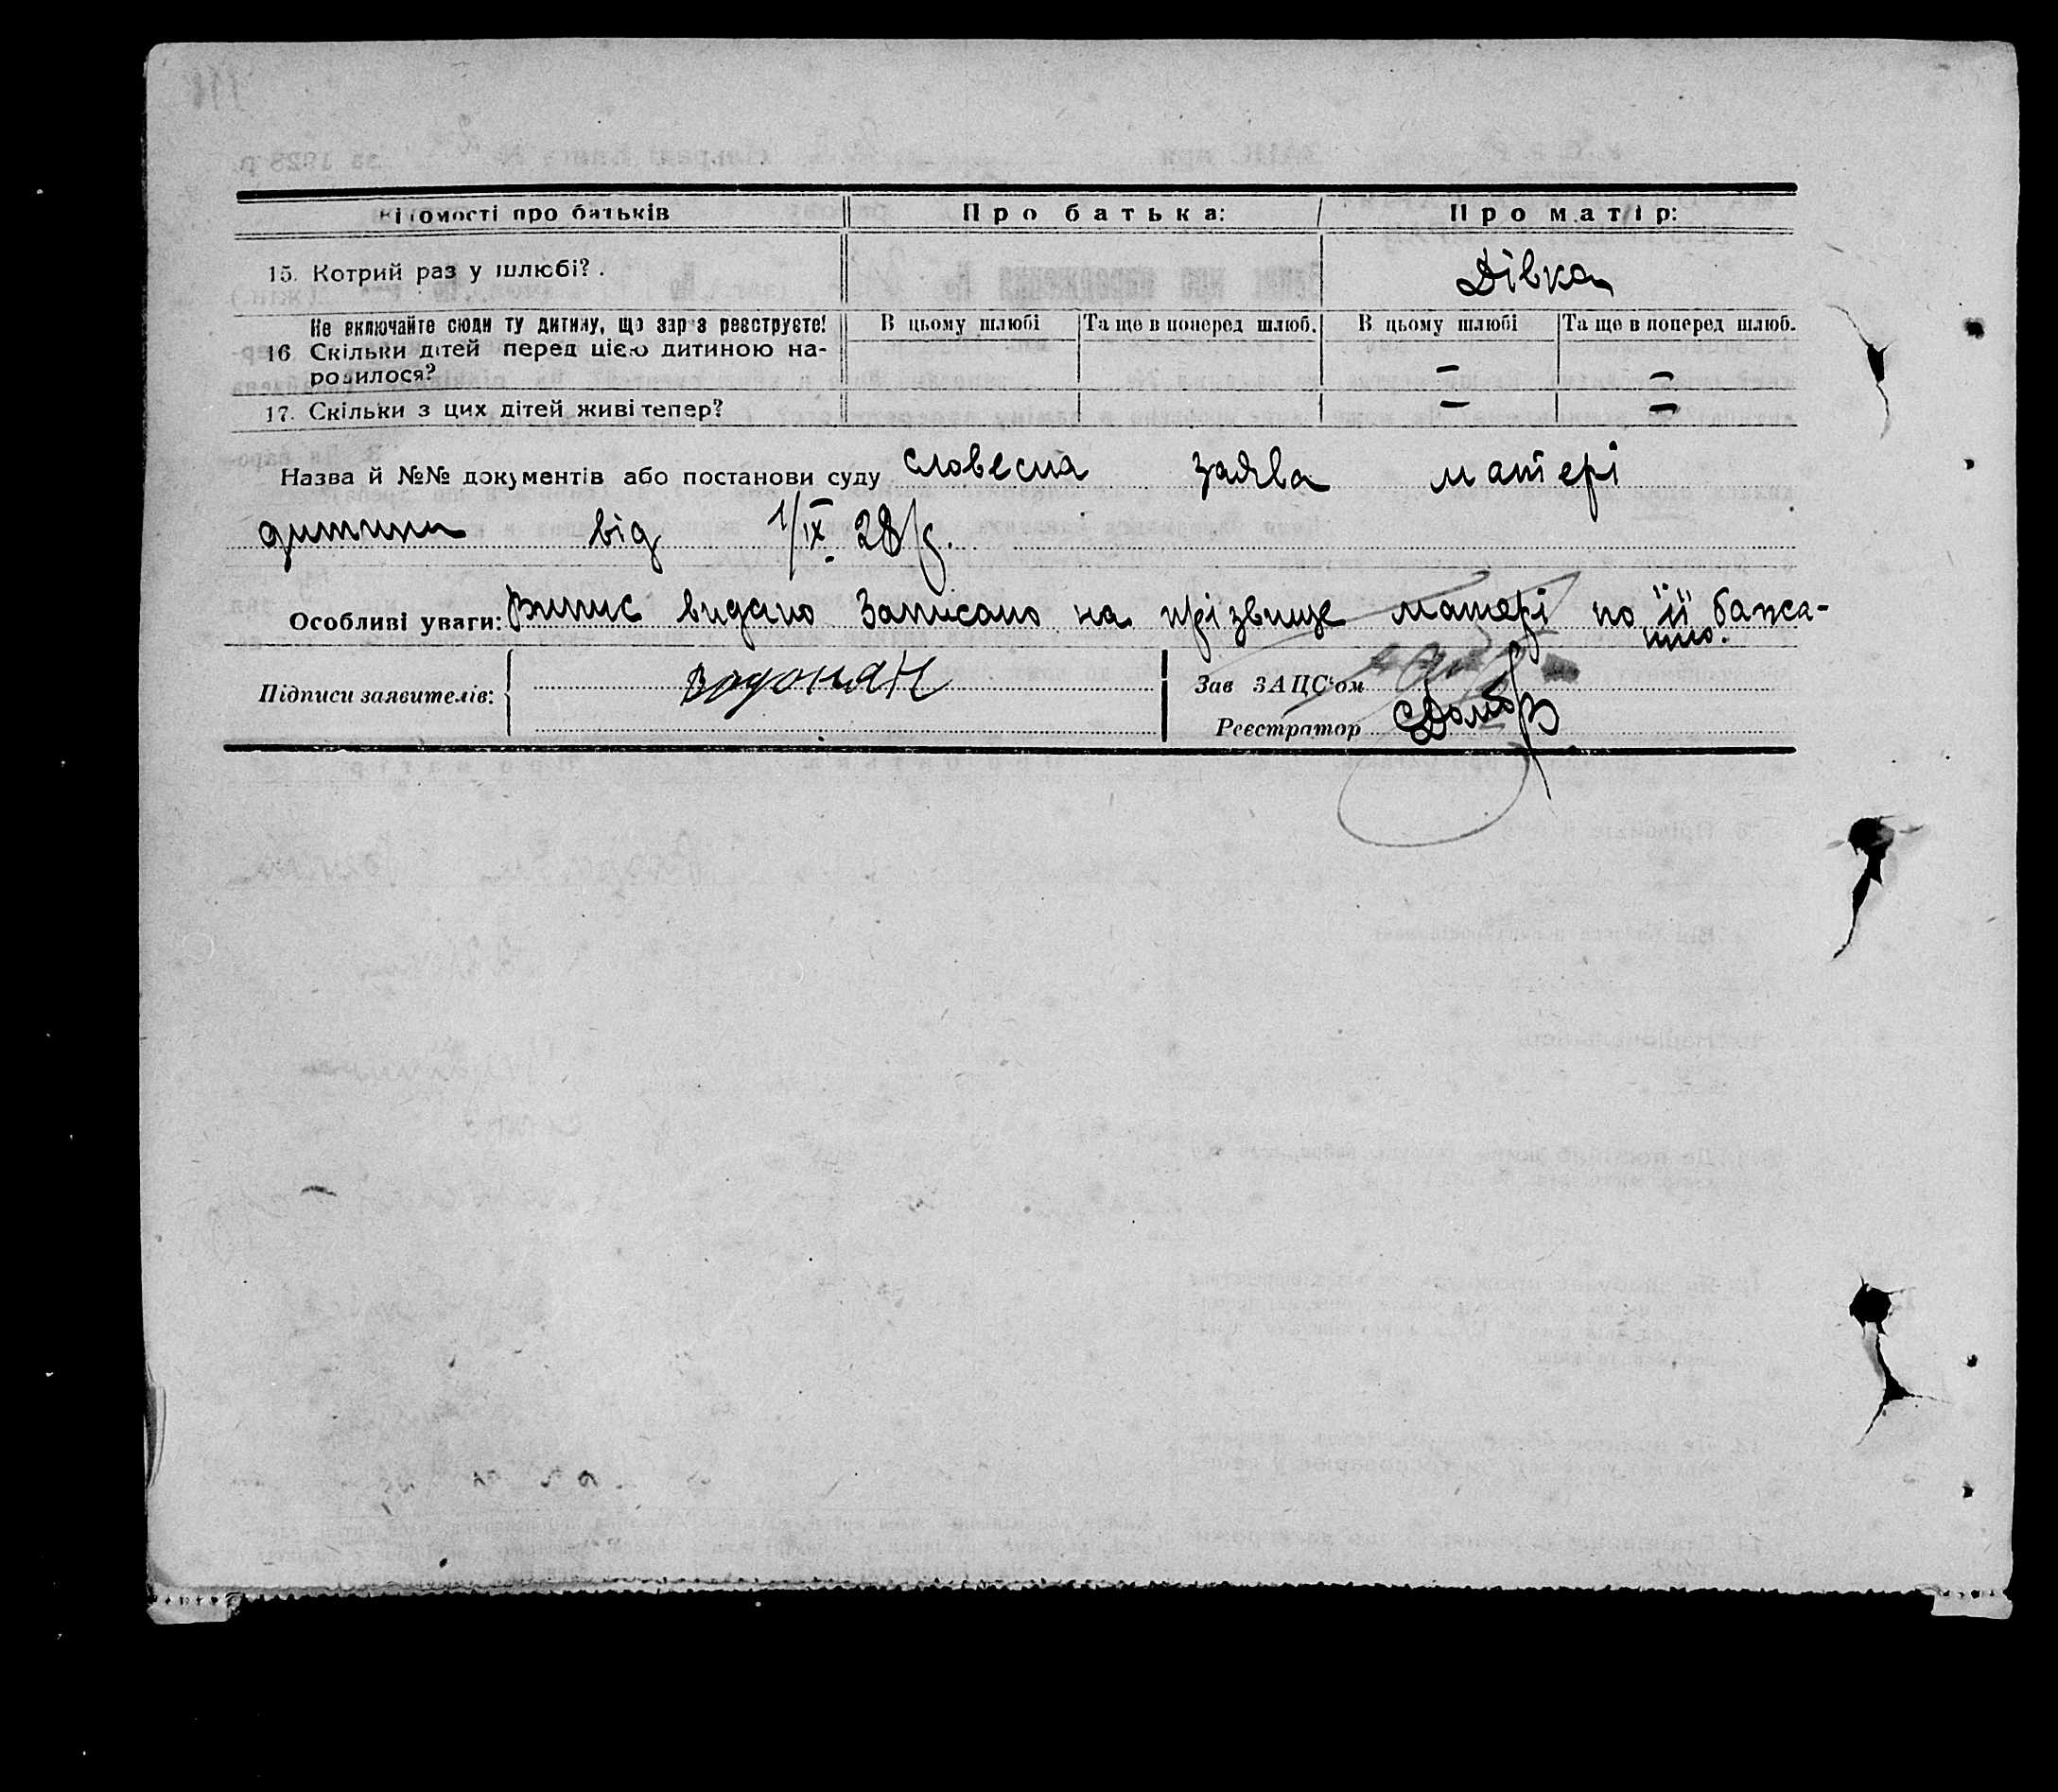 Відомості про батьків Про батька: Про матір:
15. Котрий раз у шлюбі? . Дівка
Не включайте сюди ту дитину, що зараз реєструєте! В цьому шлюбі Та ще в поперед шлюб. В цьому шлюбі Та ще в поперед шлюб.
16 Скільки дітей перед цією дитиною на-
родилося? — —
17. Скільки з цих дітей живі тепер? — —
Назва й №№ документів або постанови суду словесна заява матері
дитини від 1/IX 28 р.
Особливі уваги: Випис видано Записано на прізвище матері по її бажа-
нню.
Підписи заявителів: Зав ЗАЦС'ом
Реєстратор